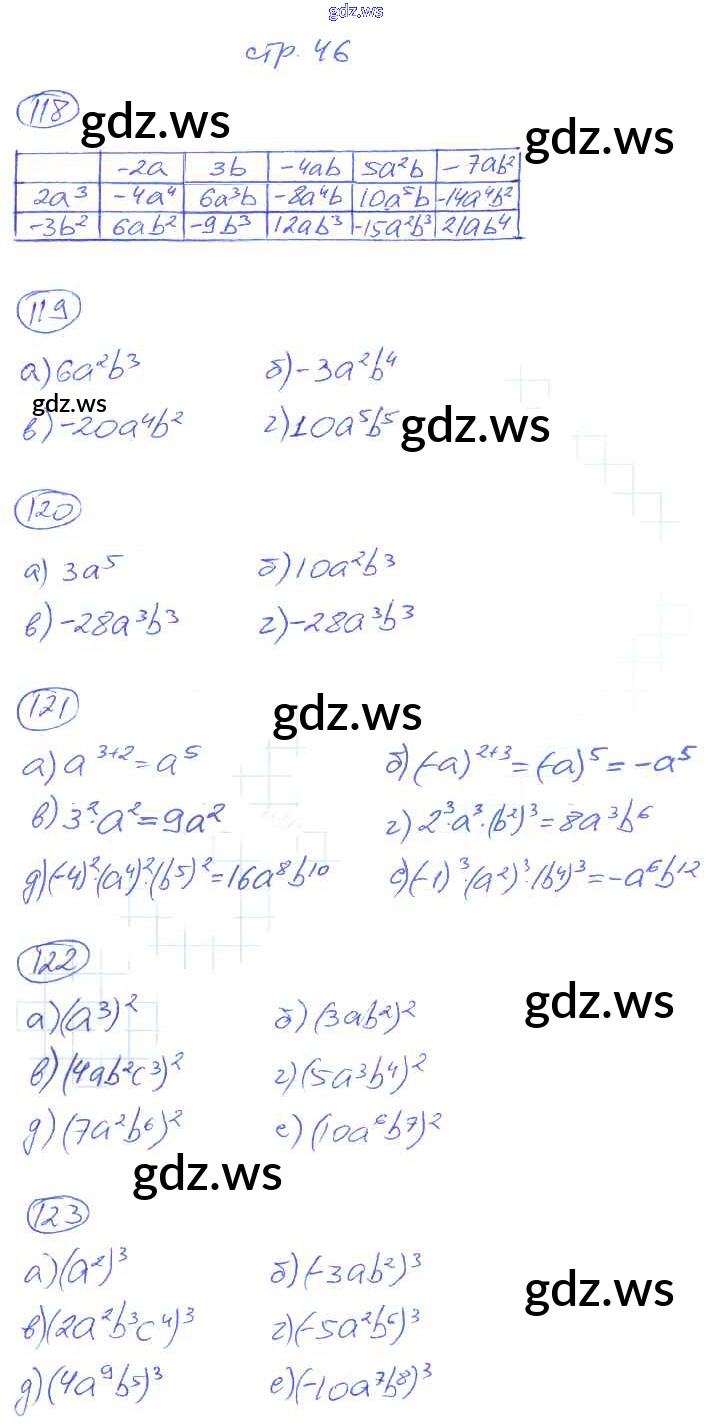 gdz.ws
стр. 46
118 gdz.ws gdz.ws
-2a 3b -4ab 5a²b -7ab²
2a³ -4a⁴ 6a³b -8a⁴b 10a⁵b -14a⁴b²
-3b² 6ab² -9b³ 12ab³ -15a²b³ 21ab⁴
119
а) 6a²b³ б) -3a²b⁴
gdz.ws
в) -20a⁴b² г) 10a⁵b⁵ gdz.ws
120
а) 3a⁵ б) 10a²b³
в) -28a³b³ г) -28a³b³
121 gdz.ws
а) a³⁺² = a⁵ б) (-a)²⁺³ = (-a)⁵ = -a⁵
в) 3²·a² = 9a² г) 2³·a³·(b²)³ = 8a³b⁶
д) (-4)²·(a⁴)²·(b⁵)² = 16a⁸b¹⁰ е) (-1)³·(a²)³·(b⁴)³ = -a⁶b¹²
122 gdz.ws
а) (a³)² б) (3ab²)²
в) (4ab²c³)² г) (5a³b⁴)²
д) (7a²b⁶)² е) (10a⁶b⁷)²
gdz.ws
123
а) (a²)³ б) (-3ab²)³ gdz.ws
в) (2a²b³c⁴)³ г) (-5a²b⁶)³
д) (4a⁹b⁵)³ е) (-10a⁷b⁸)³